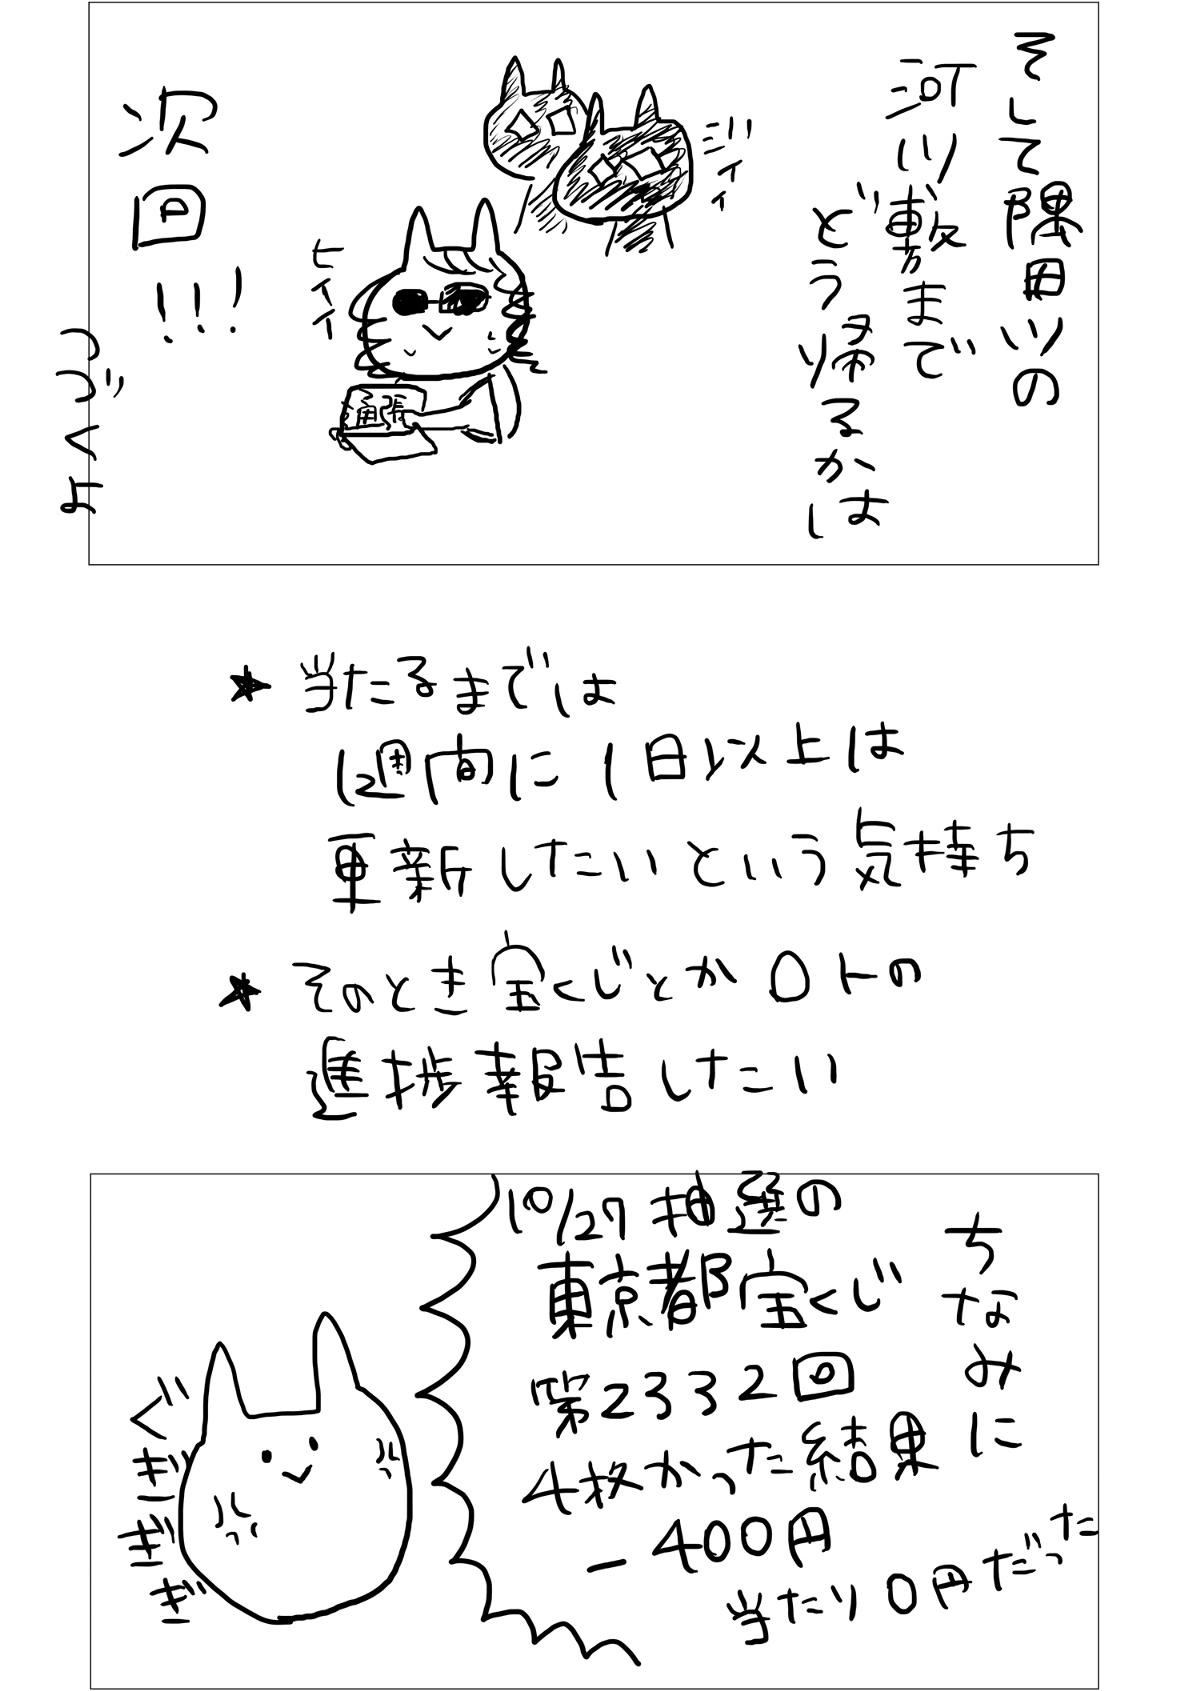 そして隅田川の
河川敷まで
どう帰るかは
ジイィ
ヒィイ
通張
次回!!!
つづくよ
★当たるまでは
1週間に1日以上は
更新したいという気持ち
★そのとき宝くじとかロトの
進捗報告したい
ちなみに
10/27抽選の
東京都宝くじ
第2332回
4枚かった結果
-400円
当たり0円だった
ぐぎぎぎ